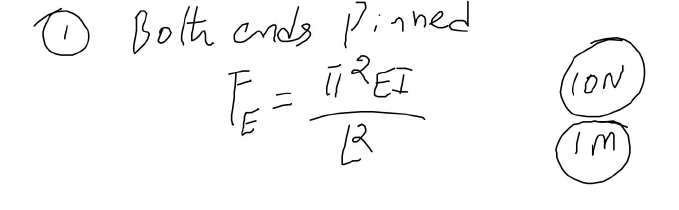 ① Both ends Pinned
F_E = π²EI / L²
10N
1M